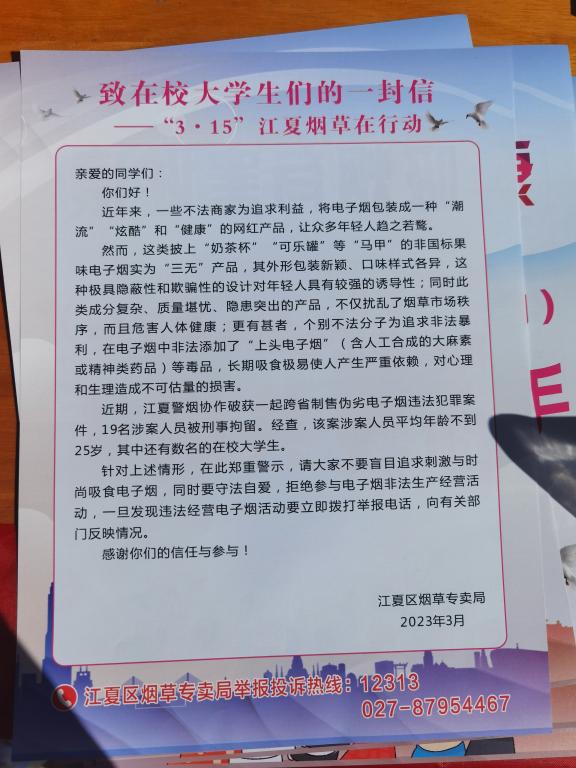 致在校大学生们的一封信
——“3·15”江夏烟草在行动
亲爱的同学们：
你们好！
近年来，一些不法商家为追求利益，将电子烟包装成一种“潮
流”“炫酷”和“健康”的网红产品，让众多年轻人趋之若鹜。
然而，这类披上“奶茶杯”“可乐罐”等“马甲”的非国标果
味电子烟实为“三无”产品，其外形包装新颖、口味样式各异，这
种极具隐蔽性和欺骗性的设计对年轻人具有较强的诱导性；同时此
类成分复杂、质量堪忧、隐患突出的产品，不仅扰乱了烟草市场秩
序，而且危害人体健康；更有甚者，个别不法分子为追求非法暴
利，在电子烟中非法添加了“上头电子烟”（含人工合成的大麻素
或精神类药品）等毒品，长期吸食极易使人产生严重依赖，对心理
和生理造成不可估量的损害。
近期，江夏警烟协作破获一起跨省制售伪劣电子烟违法犯罪案
件，19名涉案人员被刑事拘留。经查，该案涉案人员平均年龄不到
25岁，其中还有数名的在校大学生。
针对上述情形，在此郑重警示，请大家不要盲目追求刺激与时
尚吸食电子烟，同时要守法自爱，拒绝参与电子烟非法生产经营活
动，一旦发现违法经营电子烟活动要立即拨打举报电话，向有关部
门反映情况。
感谢你们的信任与参与！
江夏区烟草专卖局
2023年3月
江夏区烟草专卖局举报投诉热线：12313
027-87954467
）
E